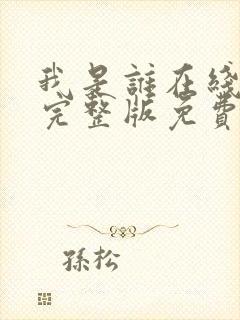 我是誰在綫
完整版免費
孫松